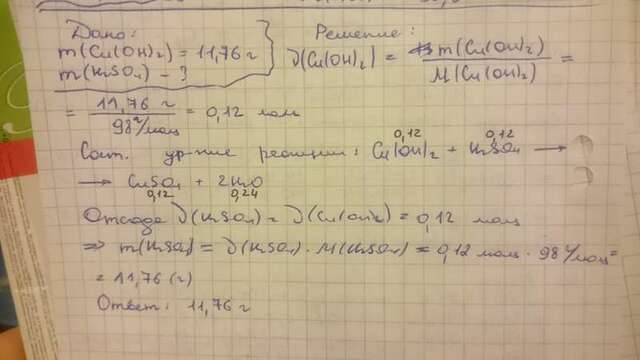 Дано:
m(Cu(OH)₂) = 11,76 г
m(H₂SO₄) - ?
Решение:
ν(Cu(OH)₂) = m(Cu(OH)₂) / M(Cu(OH)₂) =
= 11,76 г / 98 г/моль = 0,12 моль
Сост. ур-ние реакции: Cu(OH)₂ + H₂SO₄ →
0,12 0,12
→ CuSO₄ + 2H₂O
0,12 0,24
Отсюда ν(H₂SO₄) = ν(Cu(OH)₂) = 0,12 моль
⇒ m(H₂SO₄) = ν(H₂SO₄) · M(H₂SO₄) = 0,12 моль · 98 г/моль =
= 11,76 (г)
Ответ: 11,76 г